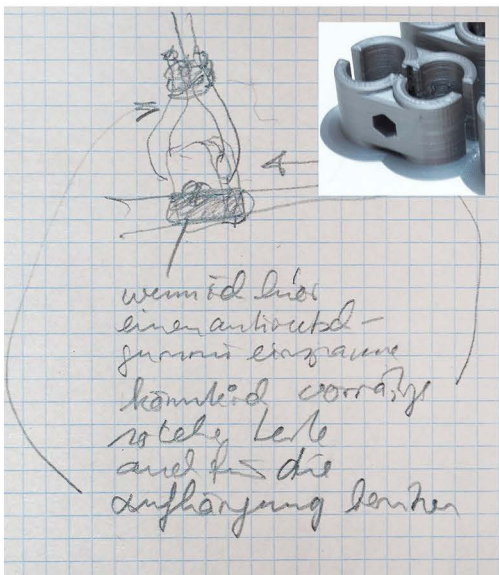 wenn ich hier
einen antirutsch-
gummi einspanne
könnte ich vorrätige
solche Teile
auch für die
aufhängung